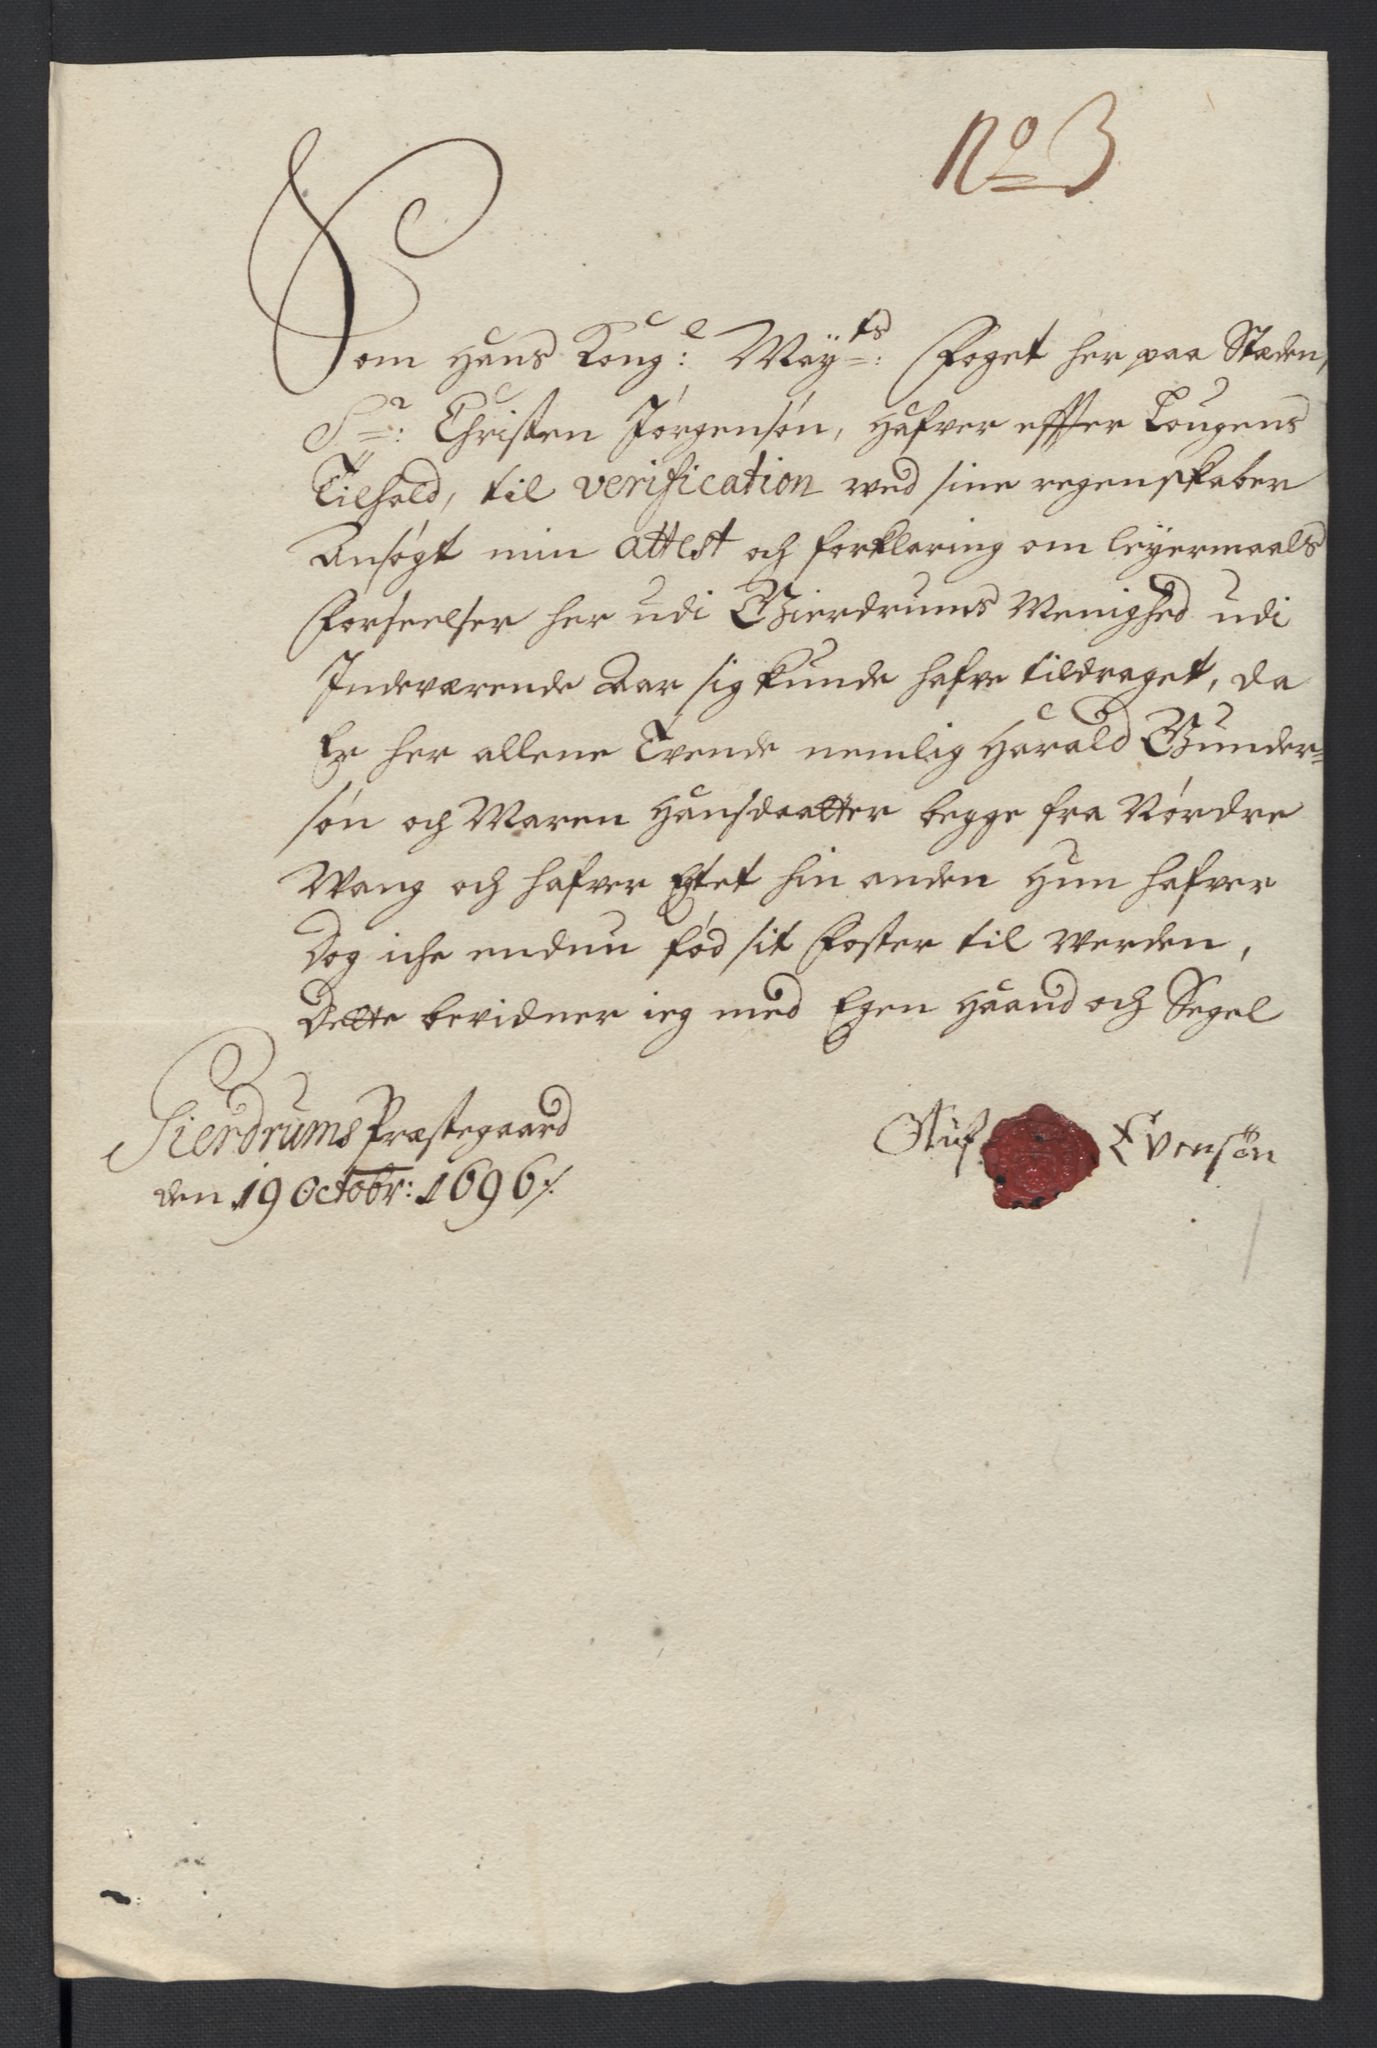 No 3
Som Hans Kong:e May:ts Foget her paa Stæden,
Sr: Christen Jørgensøn, hafver effter Lougens
Tilhold, til verification ved sine regenskaber
Ansøgt min attest och forklaring om leyermaals
Forseelser her udi Gierdrums Menighed udi
Indeværende Aar sig kunde hafve tildraget, da
Er her allene Tvende nemlig Harald Gunder-
søn och Maren Hansdaatter begge fra Nordre
Wang och hafver Egtet hin anden Hun hafver
Dog iche endnu fød sit Foster til Werden,
Dette bevidner ieg med Egen Haand och Segel
Gierdrums Præstegaard
den 19 Octobr: 1696 ⁒
Oluf Evensøn